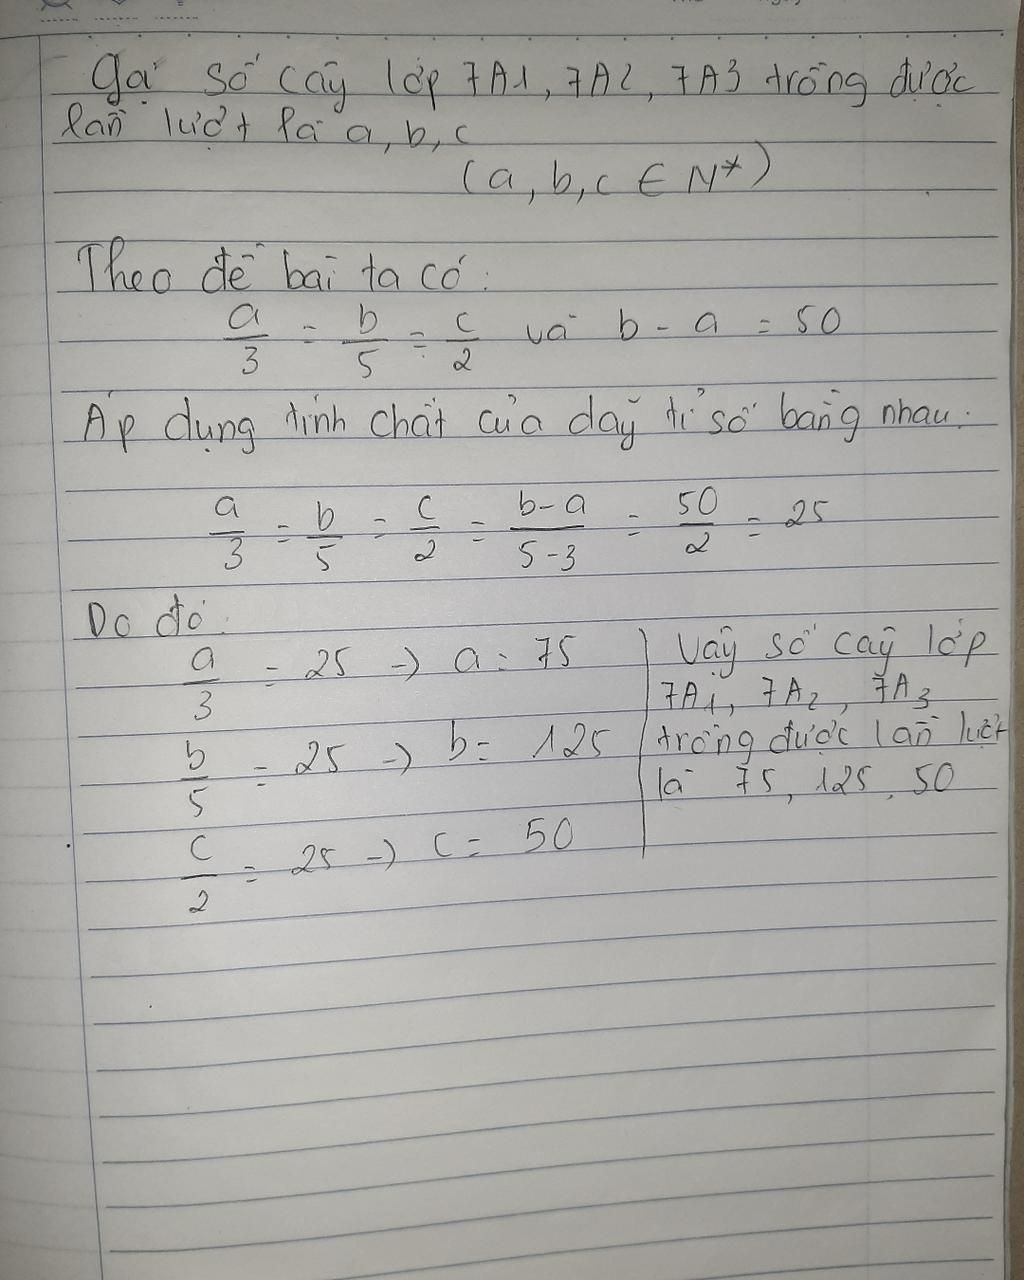 Gọi số cây lớp 7A1, 7A2, 7A3 trồng được
lần lượt là a, b, c
(a, b, c ∈ N*)
Theo đề bài ta có:
a/3 = b/5 = c/2 và b - a = 50
Áp dụng tính chất của dãy tỉ số bằng nhau:
a/3 = b/5 = c/2 = b-a/5-3 = 50/2 = 25
Do đó:
a/3 = 25 → a = 75
b/5 = 25 → b = 125
c/2 = 25 → c = 50
Vậy số cây lớp
7A1, 7A2, 7A3
trồng được lần lượt
là 75, 125, 50